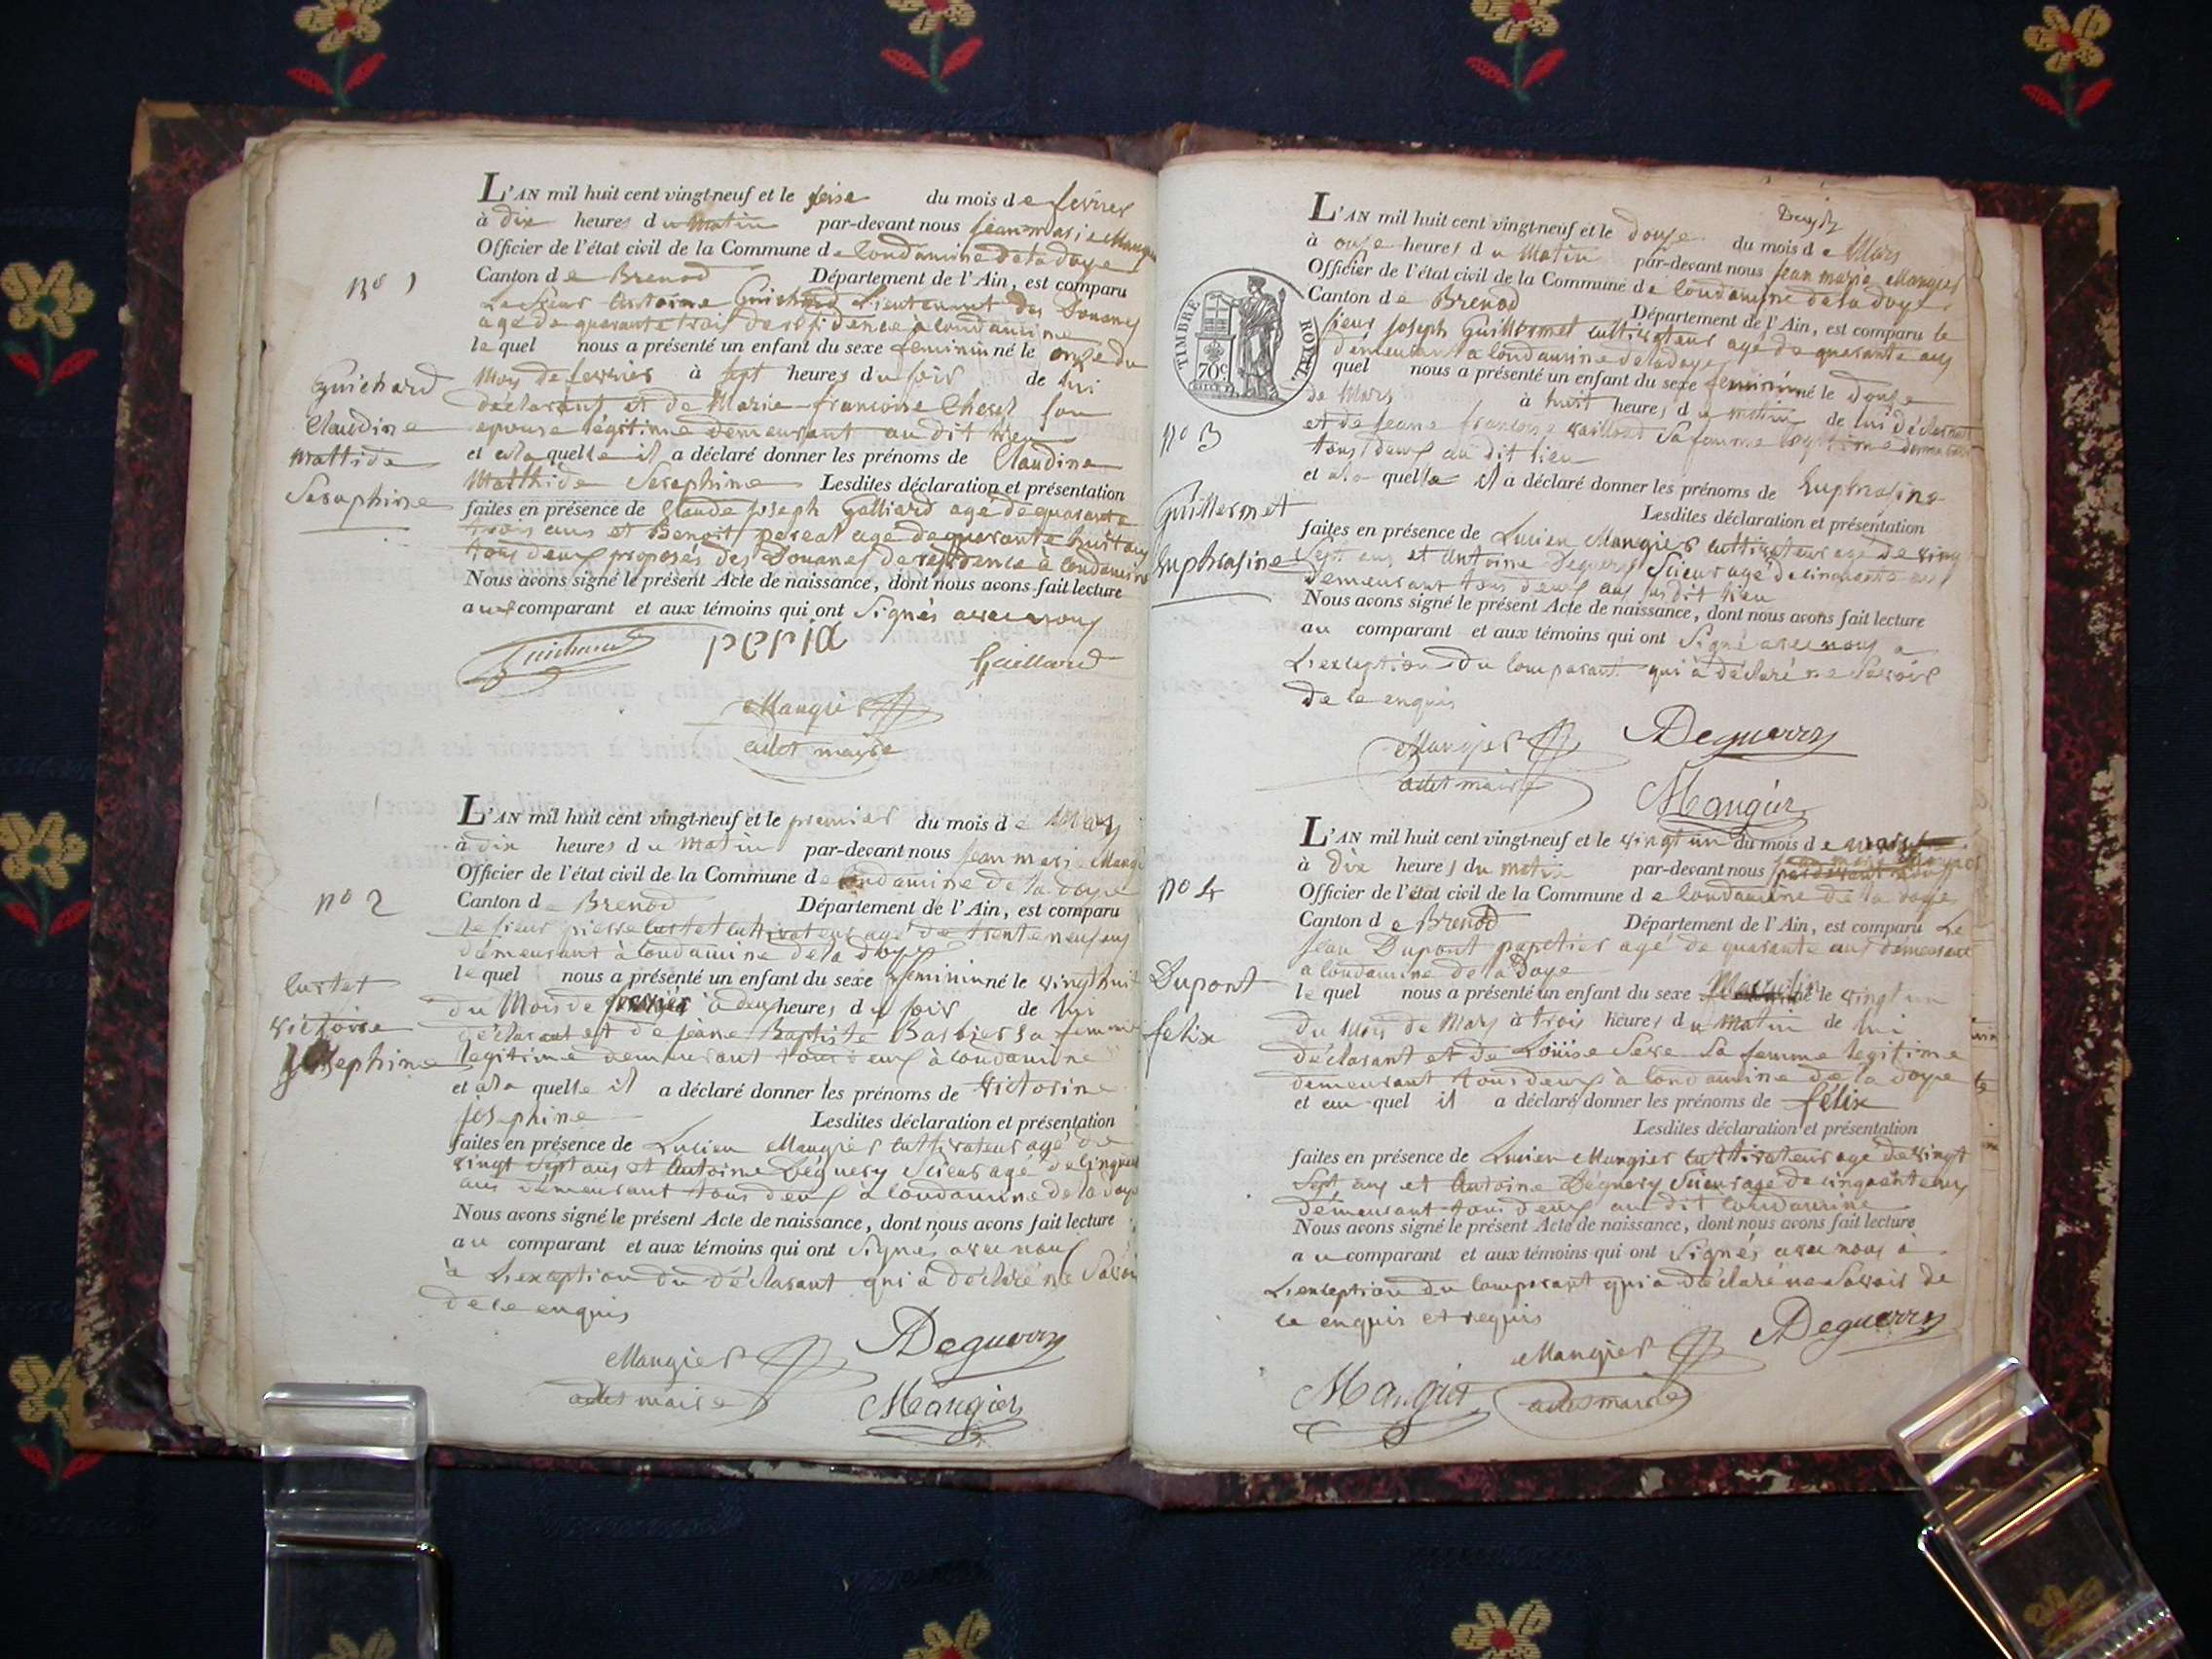 L'AN mil huit cent vingt-neuf et le seise du mois de fevrier
à dix heures du Matin par-devant nous Jean marie Mangier
Officier de l'état civil de la Commune de Condamine de la doye
Canton de Brenod Département de l'Ain, est comparu
Le sieur Antoine Guichard Lieutenant des Douanes
agé de quarante trois de residence à Condamine
le quel nous a présenté un enfant du sexe feminin né le onze du
Moy de fevrier à sept heures du soir de lui
déclarant et de Marie francoise son
epouse légitime demeurant au dit lieu
et a la quelle il a déclaré donner les prénoms de Claudine
Matthide Seraphine Lesdites déclaration et présentation
faites en présence de Claude joseph Galliard agé de quarante
trois ans et Benoit pereal agé de quarante huit ans
tous deux proposés des Douanes de residence à Condamine
Nous avons signé le présent Acte de naissance, dont nous avons fait lecture
aux comparant et aux témoins qui ont Signés avec nous
Guichard
Gaillard
Mangier
adet maire
no 1
Guichard
Claudine
Mattide
Seraphine
L'AN mil huit cent vingt-neuf et le premier du mois de Mars
à dix heures du Matin par-devant nous Jean marie Mangier
Officier de l'état civil de la Commune de Condamine de la doye
Canton de Brenod Département de l'Ain, est comparu
Le sieur pierre Curtet cultivateur agé de trente neuf ans
demeurant à Condamine de la doye
le quel nous a présenté un enfant du sexe feminin né le vingt huit
du Mois de fevrier à deux heures du soir de lui
déclarant et de jeane Baptiste Barbier sa femme
legitime demeurant tous deux à Condamine
et a la quelle il a déclaré donner les prénoms de Victorine
josephine Lesdites déclaration et présentation
faites en présence de Lucien Mangier cultivateur agé de
vingt sept ans et Antoine Déguery Scieur agé de cinquante
ans demeurant tous deux à Condamine de la doye
Nous avons signé le présent Acte de naissance, dont nous avons fait lecture
au comparant et aux témoins qui ont Signés avec nous
à L'exception du déclarant qui à déclaré ne Savoir
de ce enquis
Mangier
adet maire
Deguerry
Mangier
no 2
Curtet
victoire
josephine
L'AN mil huit cent vingt-neuf et le douze du mois de Mars
à onze heures du Matin par-devant nous Jean marie Mangier
Officier de l'état civil de la Commune de Condamine de la doye
Canton de Brenod Département de l'Ain, est comparu le
sieur Joseph Guillermet cultivateur agé de quarante ans
demeurant a Condamine de la doye
quel nous a présenté un enfant du sexe feminin né le douze
de Mars à huit heures du matin de lui déclarant
et de Jeane francoise vaillond Sa femme legitime demeurant
tous deux au dit lieu
et a la quelle il a déclaré donner les prénoms de Euphrasine
Lesdites déclaration et présentation
faites en présence de Lucien Mangier cultivateur agé de vingt
Sept ans et Antoine Deguery Scieur agé de cinquante ans
demeurant tous deux au susdit lieu
Nous avons signé le présent Acte de naissance, dont nous avons fait lecture
au comparant et aux témoins qui ont Signé avec nous a
L'exception du comparant qui à déclaré ne Savoir
de ce enquis
Mangier
adet maire
Deguerry
Mangier
TIMBRE ROYAL.
70c
no 3
Guillermet
Euphrasine
L'AN mil huit cent vingt-neuf et le vingt un du mois de mars
à Dix heures du matin par-devant nous
Officier de l'état civil de la Commune de Condamine de la doye
Canton de Brenod Département de l'Ain, est comparu Le
Jean Dupont papetier agé de quarante ans demeurant
a Condamine de la Doye
le quel nous a présenté un enfant du sexe Masculin né le vingt un
du Moy de Mars à trois heures du matin de lui
déclarant et de Loüise Sa femme legitime
demeurant tous deux à Condamine de la doye
et au quel il a déclaré donner les prénoms de félix
Lesdites déclaration et présentation
faites en présence de Lucien Mangier cultivateur agé de vingt
Sept ans et Antoine Deguery Scieur agé de cinquante ans
demeurant tous deux au dit Condamine
Nous avons signé le présent Acte de naissance, dont nous avons fait lecture
au comparant et aux témoins qui ont Signés avec nous à
L'exception du comparant qui a déclaré ne Savoir de
ce enquis et requis
Mangier
adet maire
Deguerry
Mangier
no 4
Dupont
felix